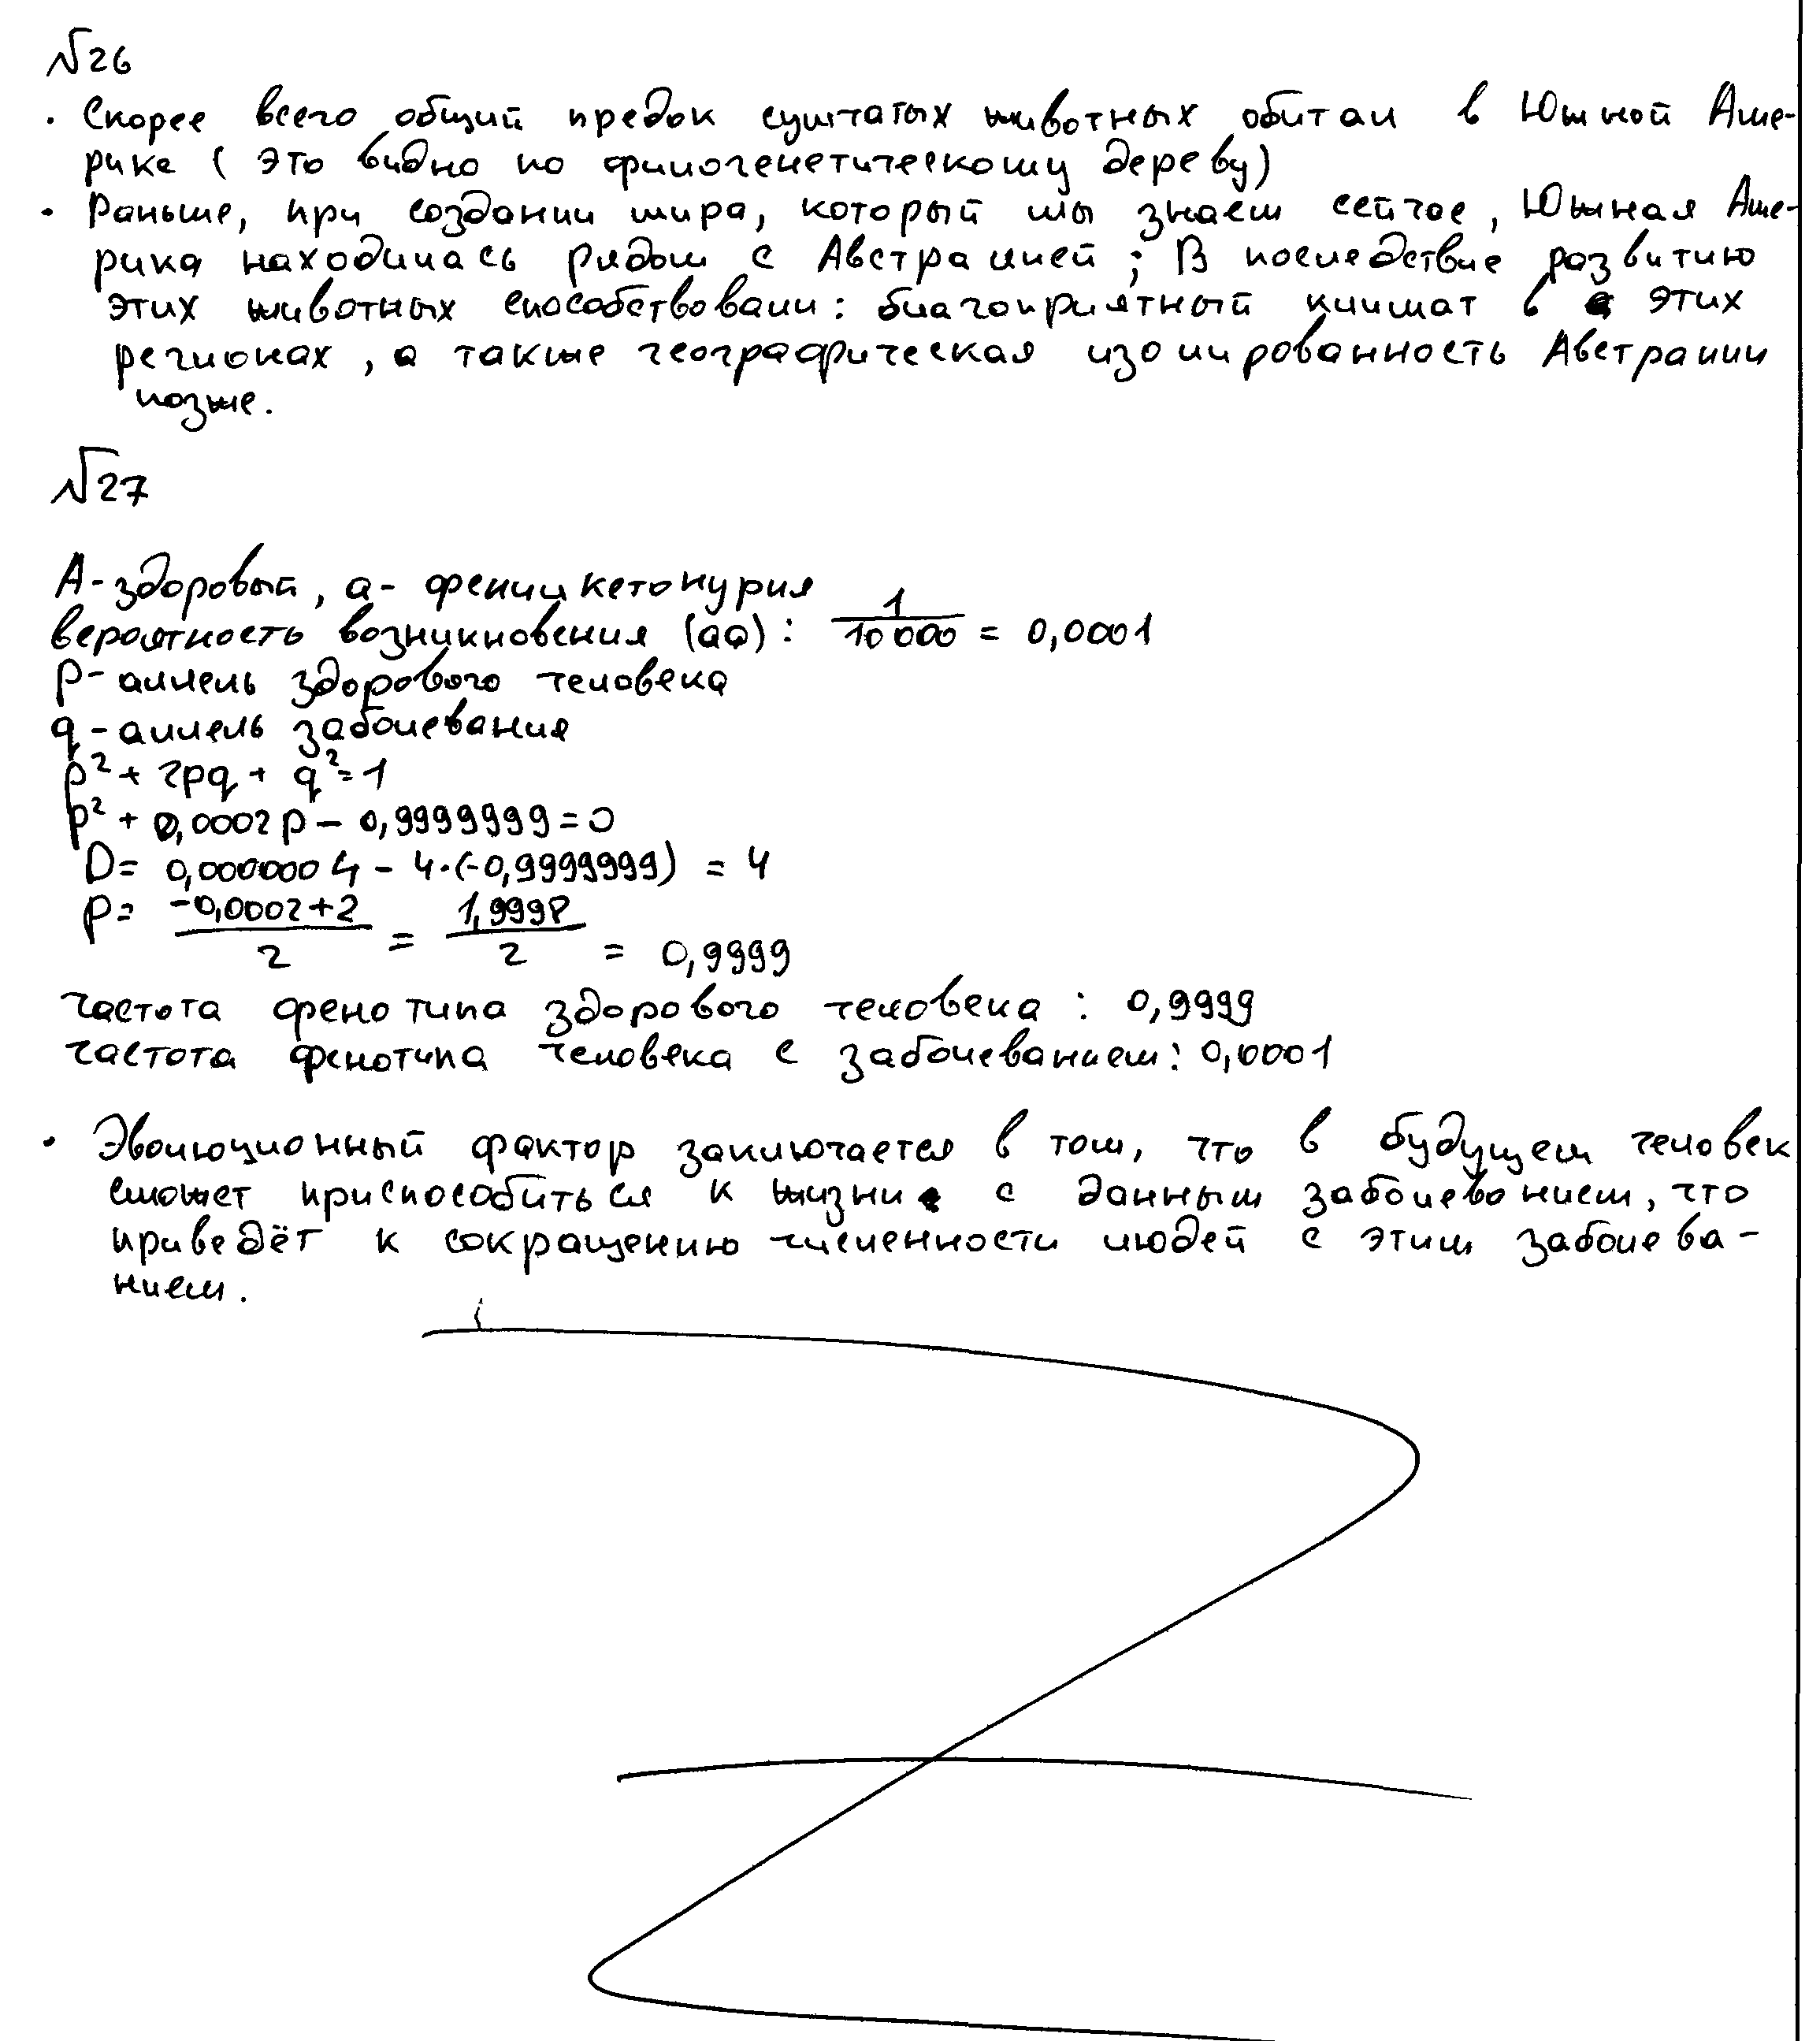 №26
· Скорее всего общий предок сумчатых животных обитал в Южной Аме-
рике ( это видно по филогенетическому дереву)
· Раньше, при создании мира, который мы знаем сейчас, Южная Аме-
рика находилась рядом с Австралией; В последствие развитию
этих животных способствовали: благоприятный климат в этих
регионах, а также географическая изолированность Австралии
позже.
№27
А-здоровый, а- фенилкетонурия
вероятность возникновения (аа): 1/10 000 = 0,0001
p- аллель здорового человека
q- аллель заболевания
p² + 2pq + q² = 1
p² + 0,0002p - 0,9999999 = 0
D= 0,0000004 - 4·(-0,9999999) = 4
p= (-0,0002+2)/2 = 1,9998/2 = 0,9999
частота фенотипа здорового человека : 0,9999
частота фенотипа человека с заболеванием: 0,0001
· Эволюционный фактор заключается в том, что в будущем человек
сможет приспособиться к жизни с данным заболеванием, что
приведёт к сокращению численности людей с этим заболева-
нием.